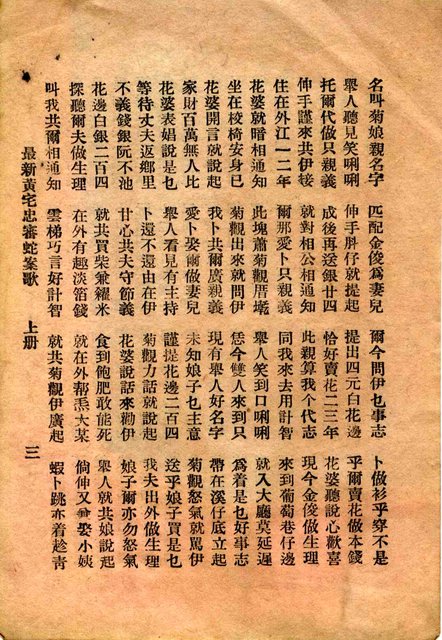 名叫菊娘親名字 匹配金俊為妻兒 爾今問伊乜事志 卜做衫乎穿不是
舉人聽見笑唎唎 伸手胖仔就提起 提出四元白花邊 乎爾賣花做本錢
托爾代做只親義 成後再送銀廿四 恰好賣花二三年 花婆聽說心歡喜
伸手謹來共伊接 就對相公相通知 此親算我个代志 現今金俊做生理
住在外江一二年 爾那愛卜只親義 同我來去用計智 來到葡萄巷仔邊
花婆就暗相通知 此塊蕭菊觀厝墘 舉人笑到口唎唎 就入大廳莫延遲
坐在校椅安身已 菊觀出來就問伊 恁今雙人來到只 為着是乜好事志
花婆開言就說起 我卜共爾廣親義 現有舉人好名字 帶在溪仔底立起
家財百萬無人比 愛卜娶爾做妻兒 未知娘子乜主意 菊觀怒氣就罵伊
花婆表娼說是乜 舉人看見有主持 謹提花邊二百四 送乎娘子買是乜
等待丈夫返鄉里 卜還不還由在伊 菊觀力話就說起 我夫出外做生理
不義錢銀阮不池 甘心共夫守節義 花婆說話來勸伊 娘子爾亦勿怒氣
花邊白銀二百四 就共買柴兼糴米 食到飽肥敢能死 舉人就共娘說起
探聽爾夫做生理 在外有趣淡箔錢 就在外幫炁大某 倘伸又兼娶小姨
叫我共爾相通知 雲梯巧言好計智 就共菊觀伊廣起 蝦卜跳亦着趁青
最新黃宅忠審蛇案歌 上册 三